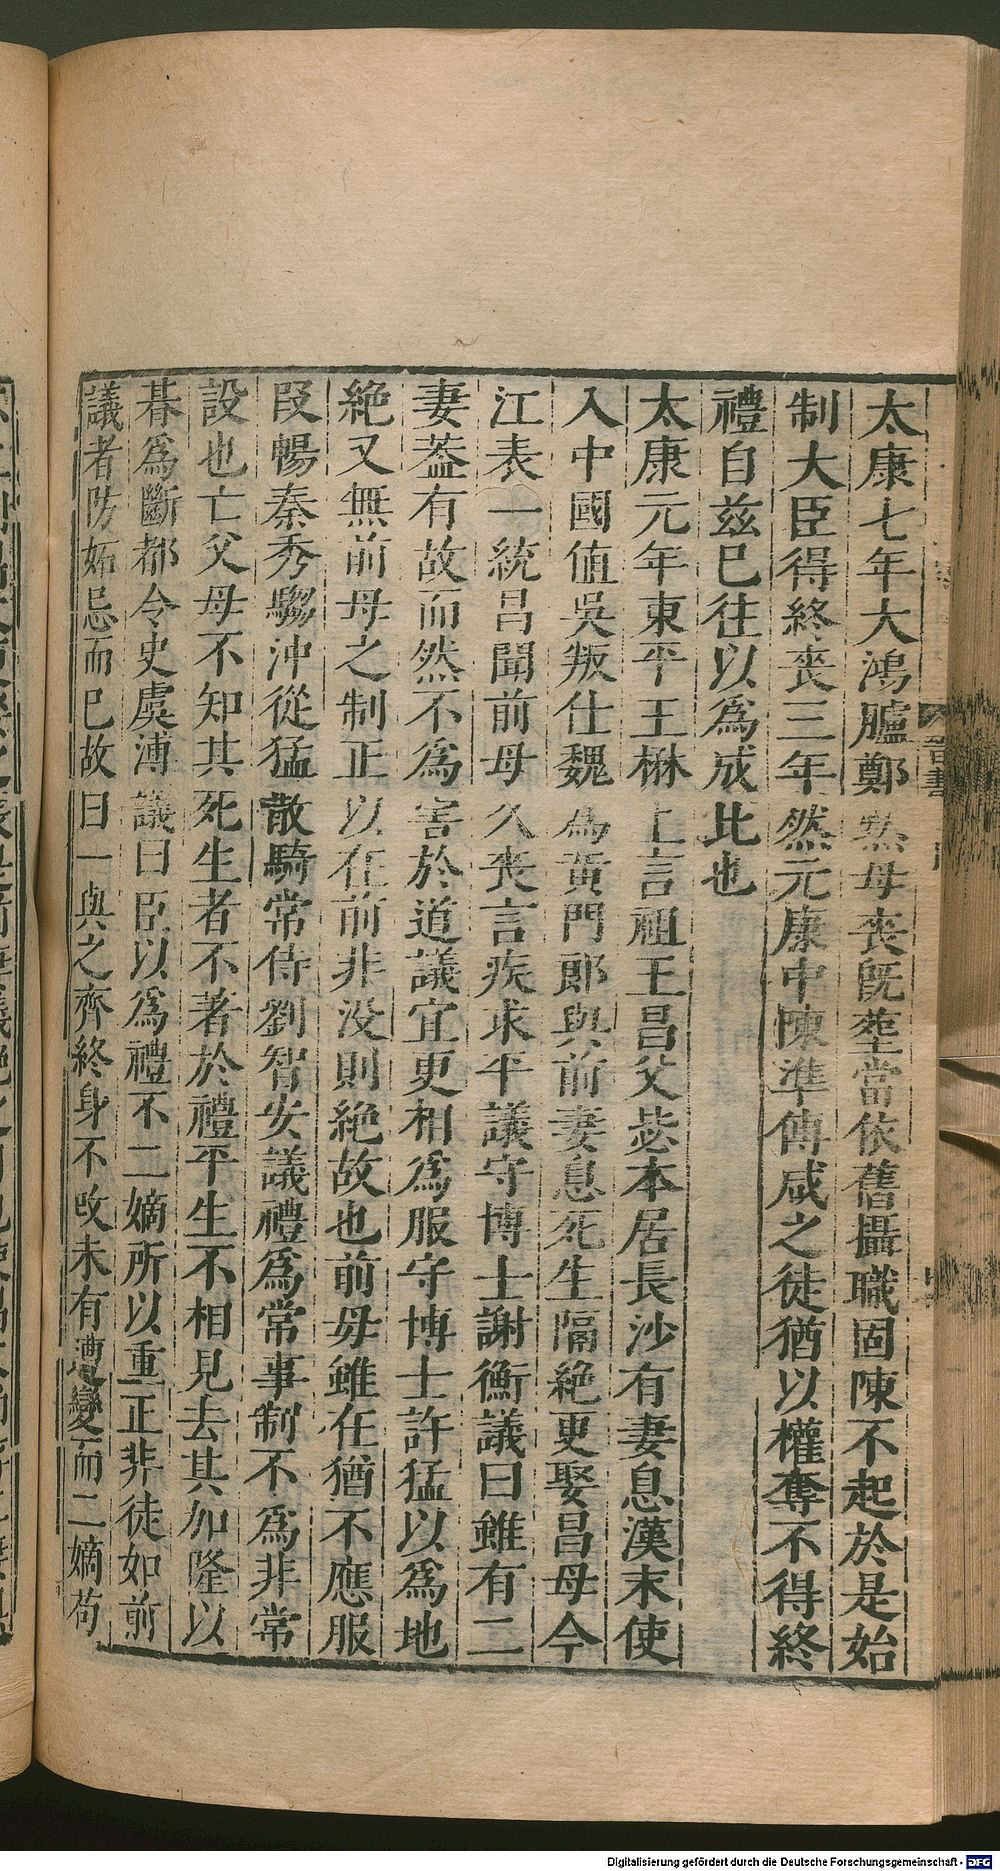 太康七年大鴻臚鄭黙母喪旣葬當依舊攝職固陳不起於是始
制大臣得終喪三年然元康中陳準傅咸之徒猶以權奪不得終
禮自兹巳往以爲成比也
太康元年東平王楙上言相王昌父毖本居長沙有妻息漢末使
入中國值吳叛仕魏爲黄門郎與前妻息死生隔絶更娶昌母今
江表一統昌聞前母久喪言疾求平議守博士謝衡議曰雖有二
妻葢有故而然不爲害於道議宜更相爲服守博士許猛以爲地
絶又無前母之制正以在前非没則絶故也前母雖在猶不應服
段暢秦秀騶沖從猛散騎常侍劉智安議禮爲常事制不爲非常
設也亡父母不知其死生者不著於禮平生不相見去其加隆以
朞爲斷都令史虞溥議曰臣以爲禮不二嫡所以重正非徒如前
議者防妬忌而巳故曰一與之齊終身不改未有遭變而二嫡苟
晉書
Digitalisierung gefördert durch die Deutsche Forschungsgemeinschaft - DFG